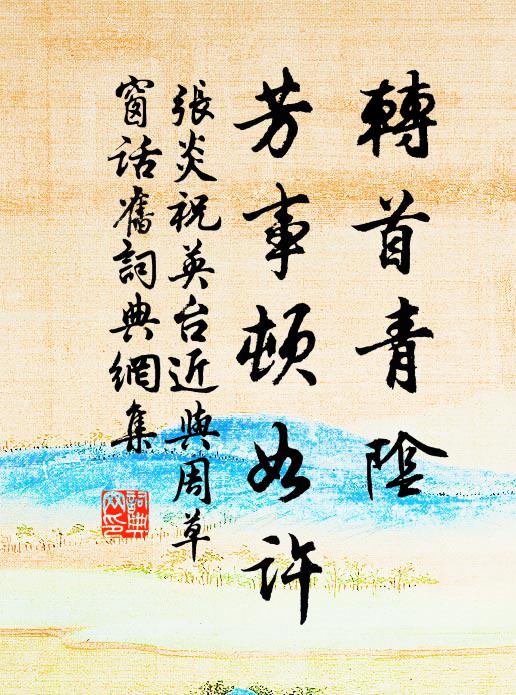 轉首青陰
芳事頓如許
張炎祝英台近與周草
窗話舊詞典網集
詞典網印